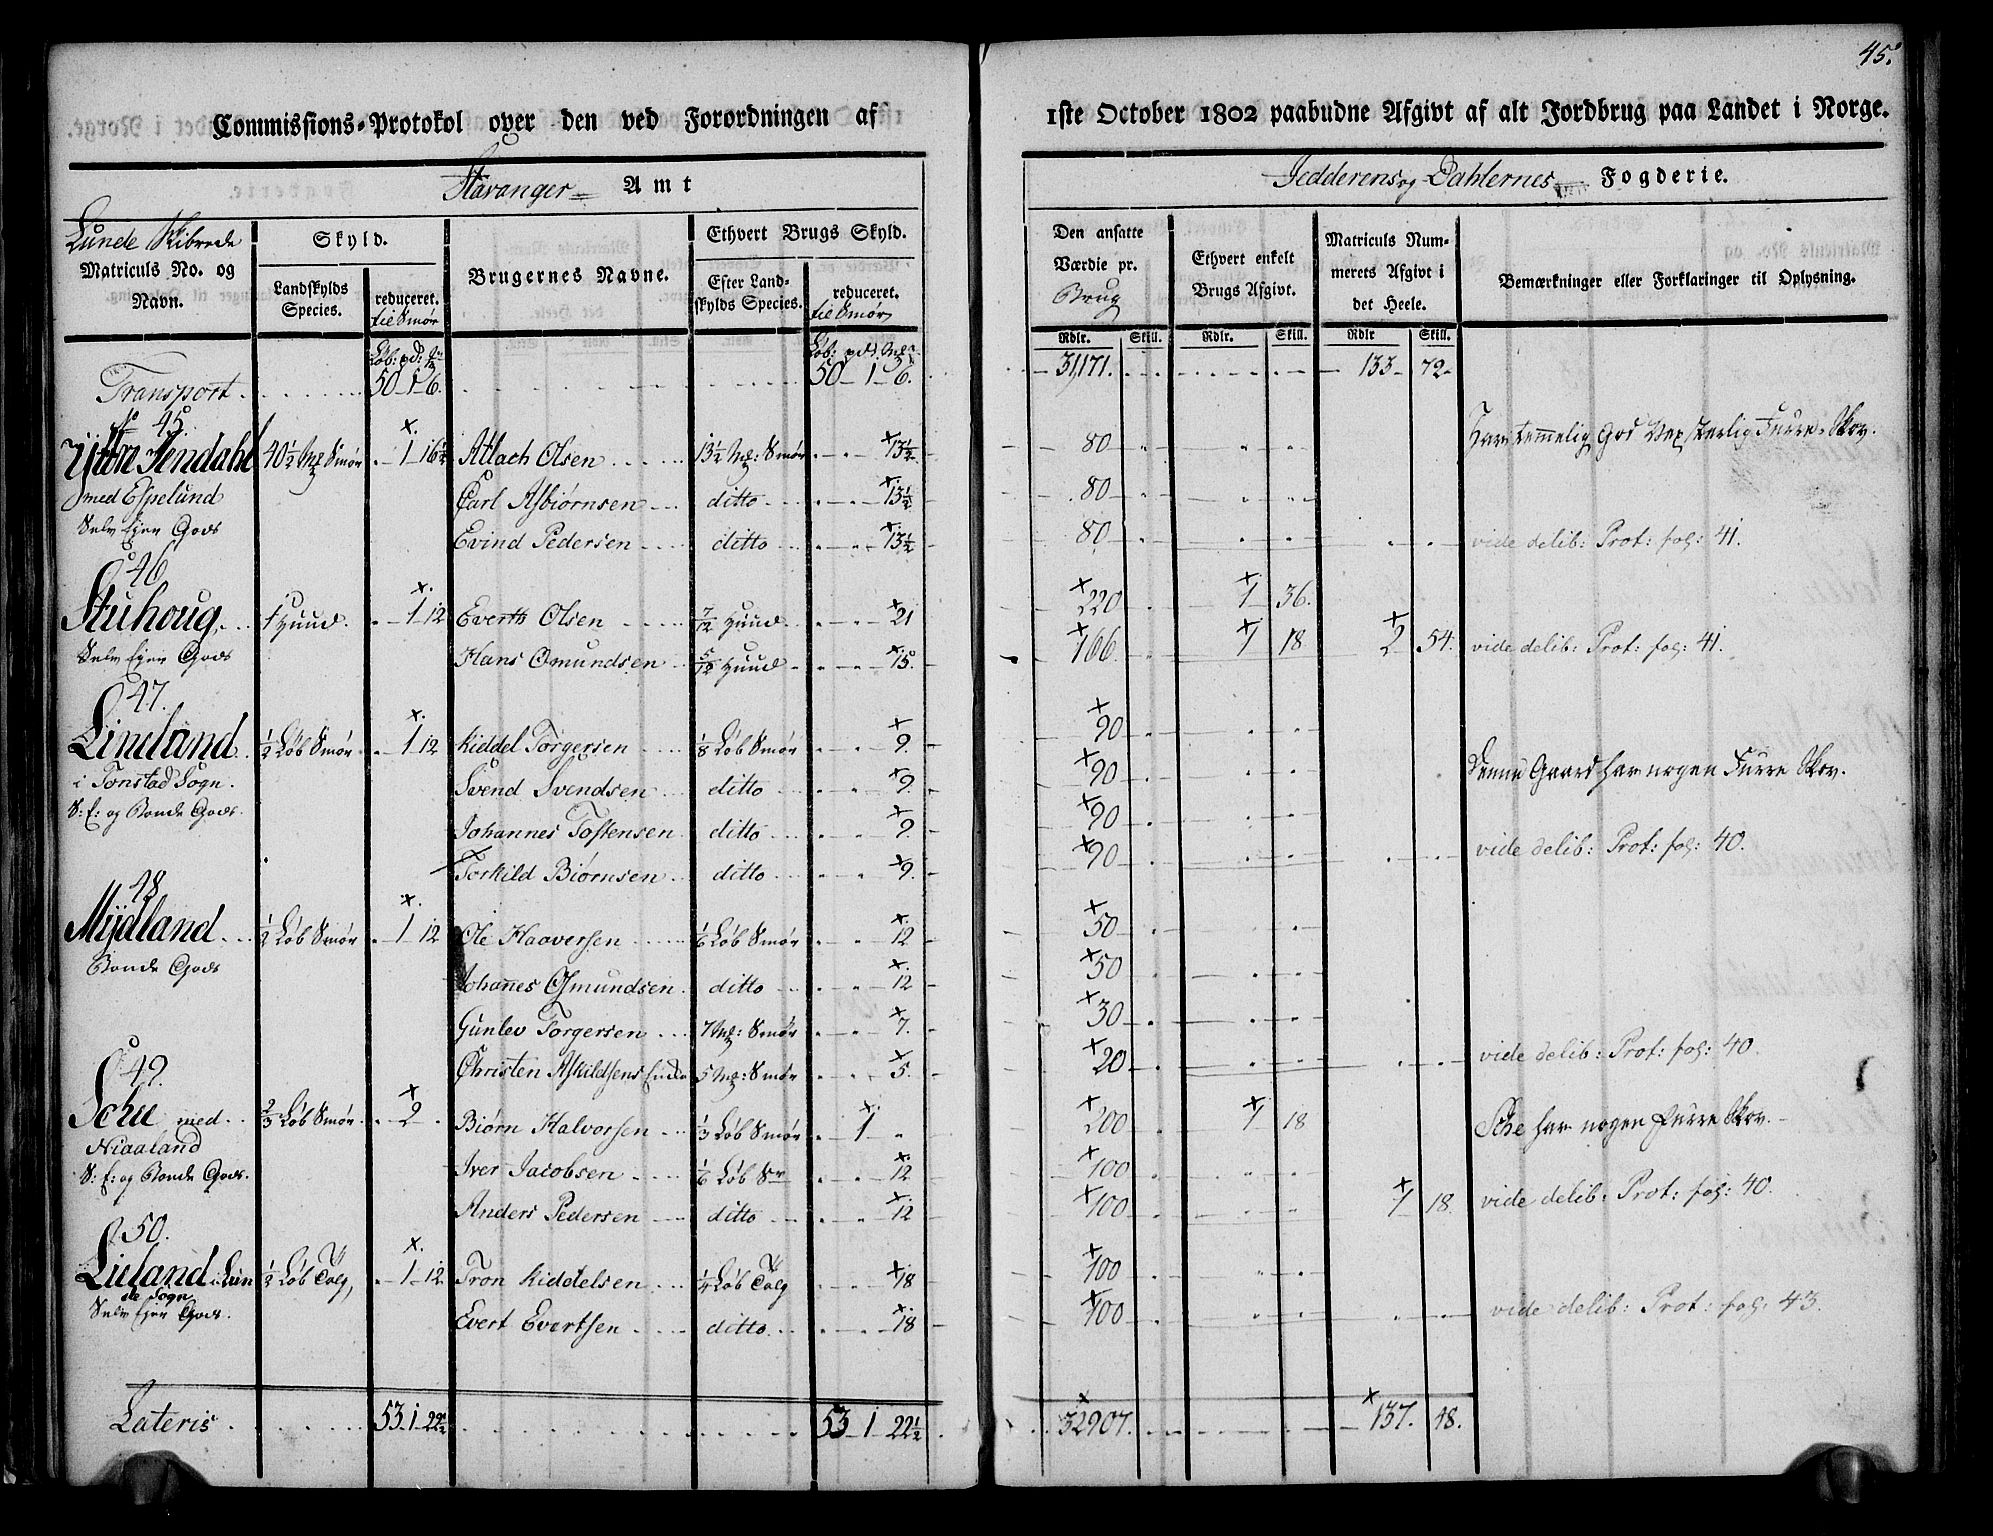 45.
Commissions-Protokol over den ved Forordningen af 1ste October 1802 paabudne Afgivt af alt Jordbrug paa Landet i Norge.
Stavanger Amt
Jedderens og Dahlernes Fogderie.
Lunde Skibrede
Matriculs No. og Navn.
Skyld.
Landskylds Species.
reduceret. til Smør
Brugernes Navne.
Ethvert Brugs Skyld.
Efter Landskylds Species.
reduceret. til Smør
Den ansatte Værdie pr. Brug
Ethvert enkelt Brugs Afgivt.
Matriculs Nummerets Afgivt i det Heele.
Bemærkninger eller Forklaringer til Oplysning.
Rdlr. Skill. Rdlr. Skill. Rdlr Skill.
Transport 50 1 6. 50 1 6. 31,171. 133 72
No 45.
Yttre Tendahl 40½ Mk Smør 1 16½ Atlach Olsen 13½ Mk: Smør 13½ 80 Har temmelig god Vexterlig Furre-Skov.
med Espelund Carl Asbiørnsen ditto 13½ 80
Selv Ejer Gods Evind Pedersen ditto 13½ 80 vide delib: Prot: fol: 41.
46
Stuhoug 1 Huud. 1 12 Everth Olsen 7/12 Huud 21 220 1 36.
Selv Ejer Gods Hans Omundsen 5/12 Huud 15. 166 1 18 2 54. vide delib: Prot: fol: 41.
47.
Lindland ½ Løb Smør 1 12 Kiddel Torgersen ⅛ Løb Smør 9. 90
i Tonstad Sogn. Svend Svendsen ditto 9. 90 Denne Gaard har nogen Furre Skov.
S: E: og Bonde Gods. Johannes Tostensen ditto 9. 90
Torkild Biørnsen ditto 9. 90 vide delib: Prot: fol: 40.
48
Mydland ½ Løb Smør 1 12 Ole Haaversen ⅙ Løb Smør 12 50
Bonde Gods Johannes Osmundsen ditto 12 50
Gunlev Torgersen 7 Mk: Smør 7. 30
Christen Askildsens Enke 5 Mk: Smør 5. 20 vide delib: Prot: fol: 40.
49.
Schee med ⅔ Løb Smør 2 Biørn Halvorsen ⅓ Løb Smør 1 200 1 18 Sche har nogen Furre Skov.
Niaaland Iver Jacobsen ⅙ Løb Sr 12 100
S: E: og Bonde Gods. Anders Pedersen ditto 12 100 1 18. vide delib: Prot: fol: 40.
50.
Lieland i Lunde Sogn ½ Løb Talg, 1 12 Tron Kiddelsen ¼ Løb Talg 18 100
Selv Ejer Gods. Evert Evertsen ditto 18 100 vide delib: Prot: fol: 43.
Lateris 53 1 22½ 53 1 22½ 32907. 137. 18.